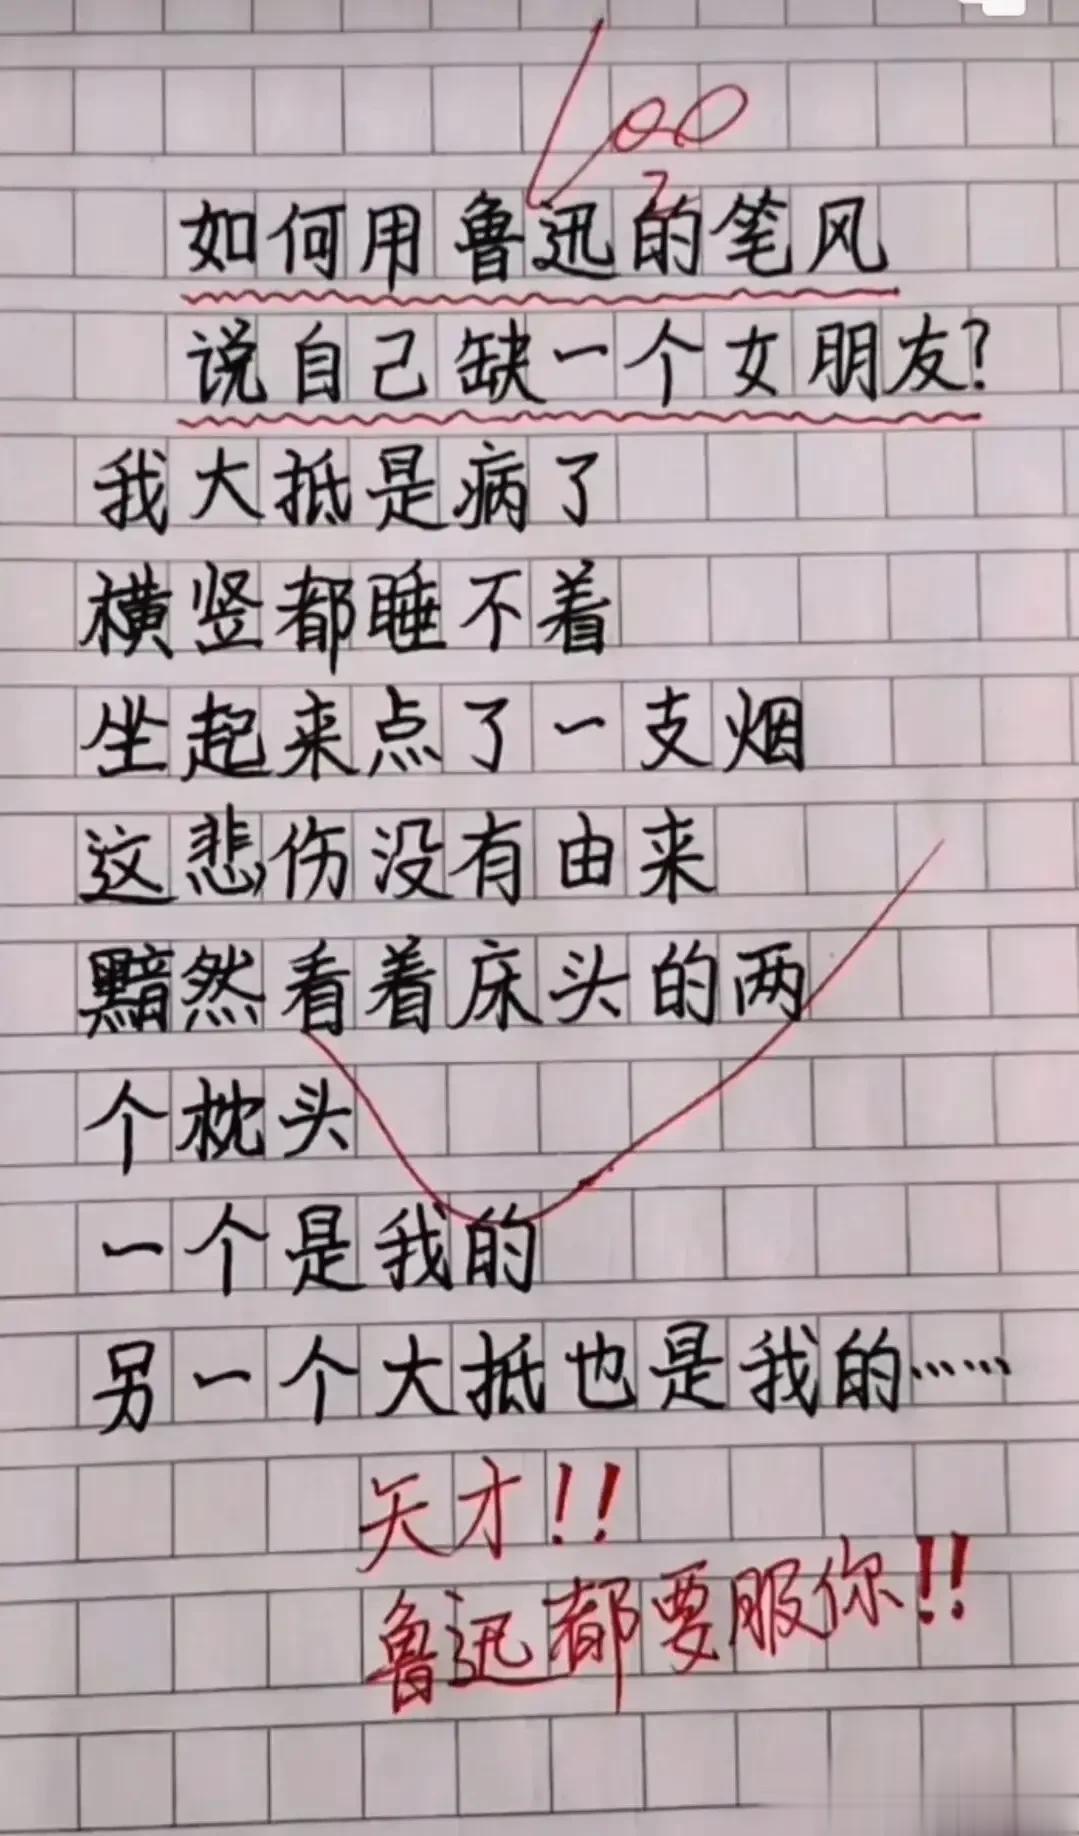 100
如何用鲁迅的笔风
说自己缺一个女朋友?
我大抵是病了
横竖都睡不着
坐起来点了一支烟
这悲伤没有由来
黯然看着床头的两
个枕头
一个是我的
另一个大抵也是我的……
天才!!
鲁迅都要服你!!